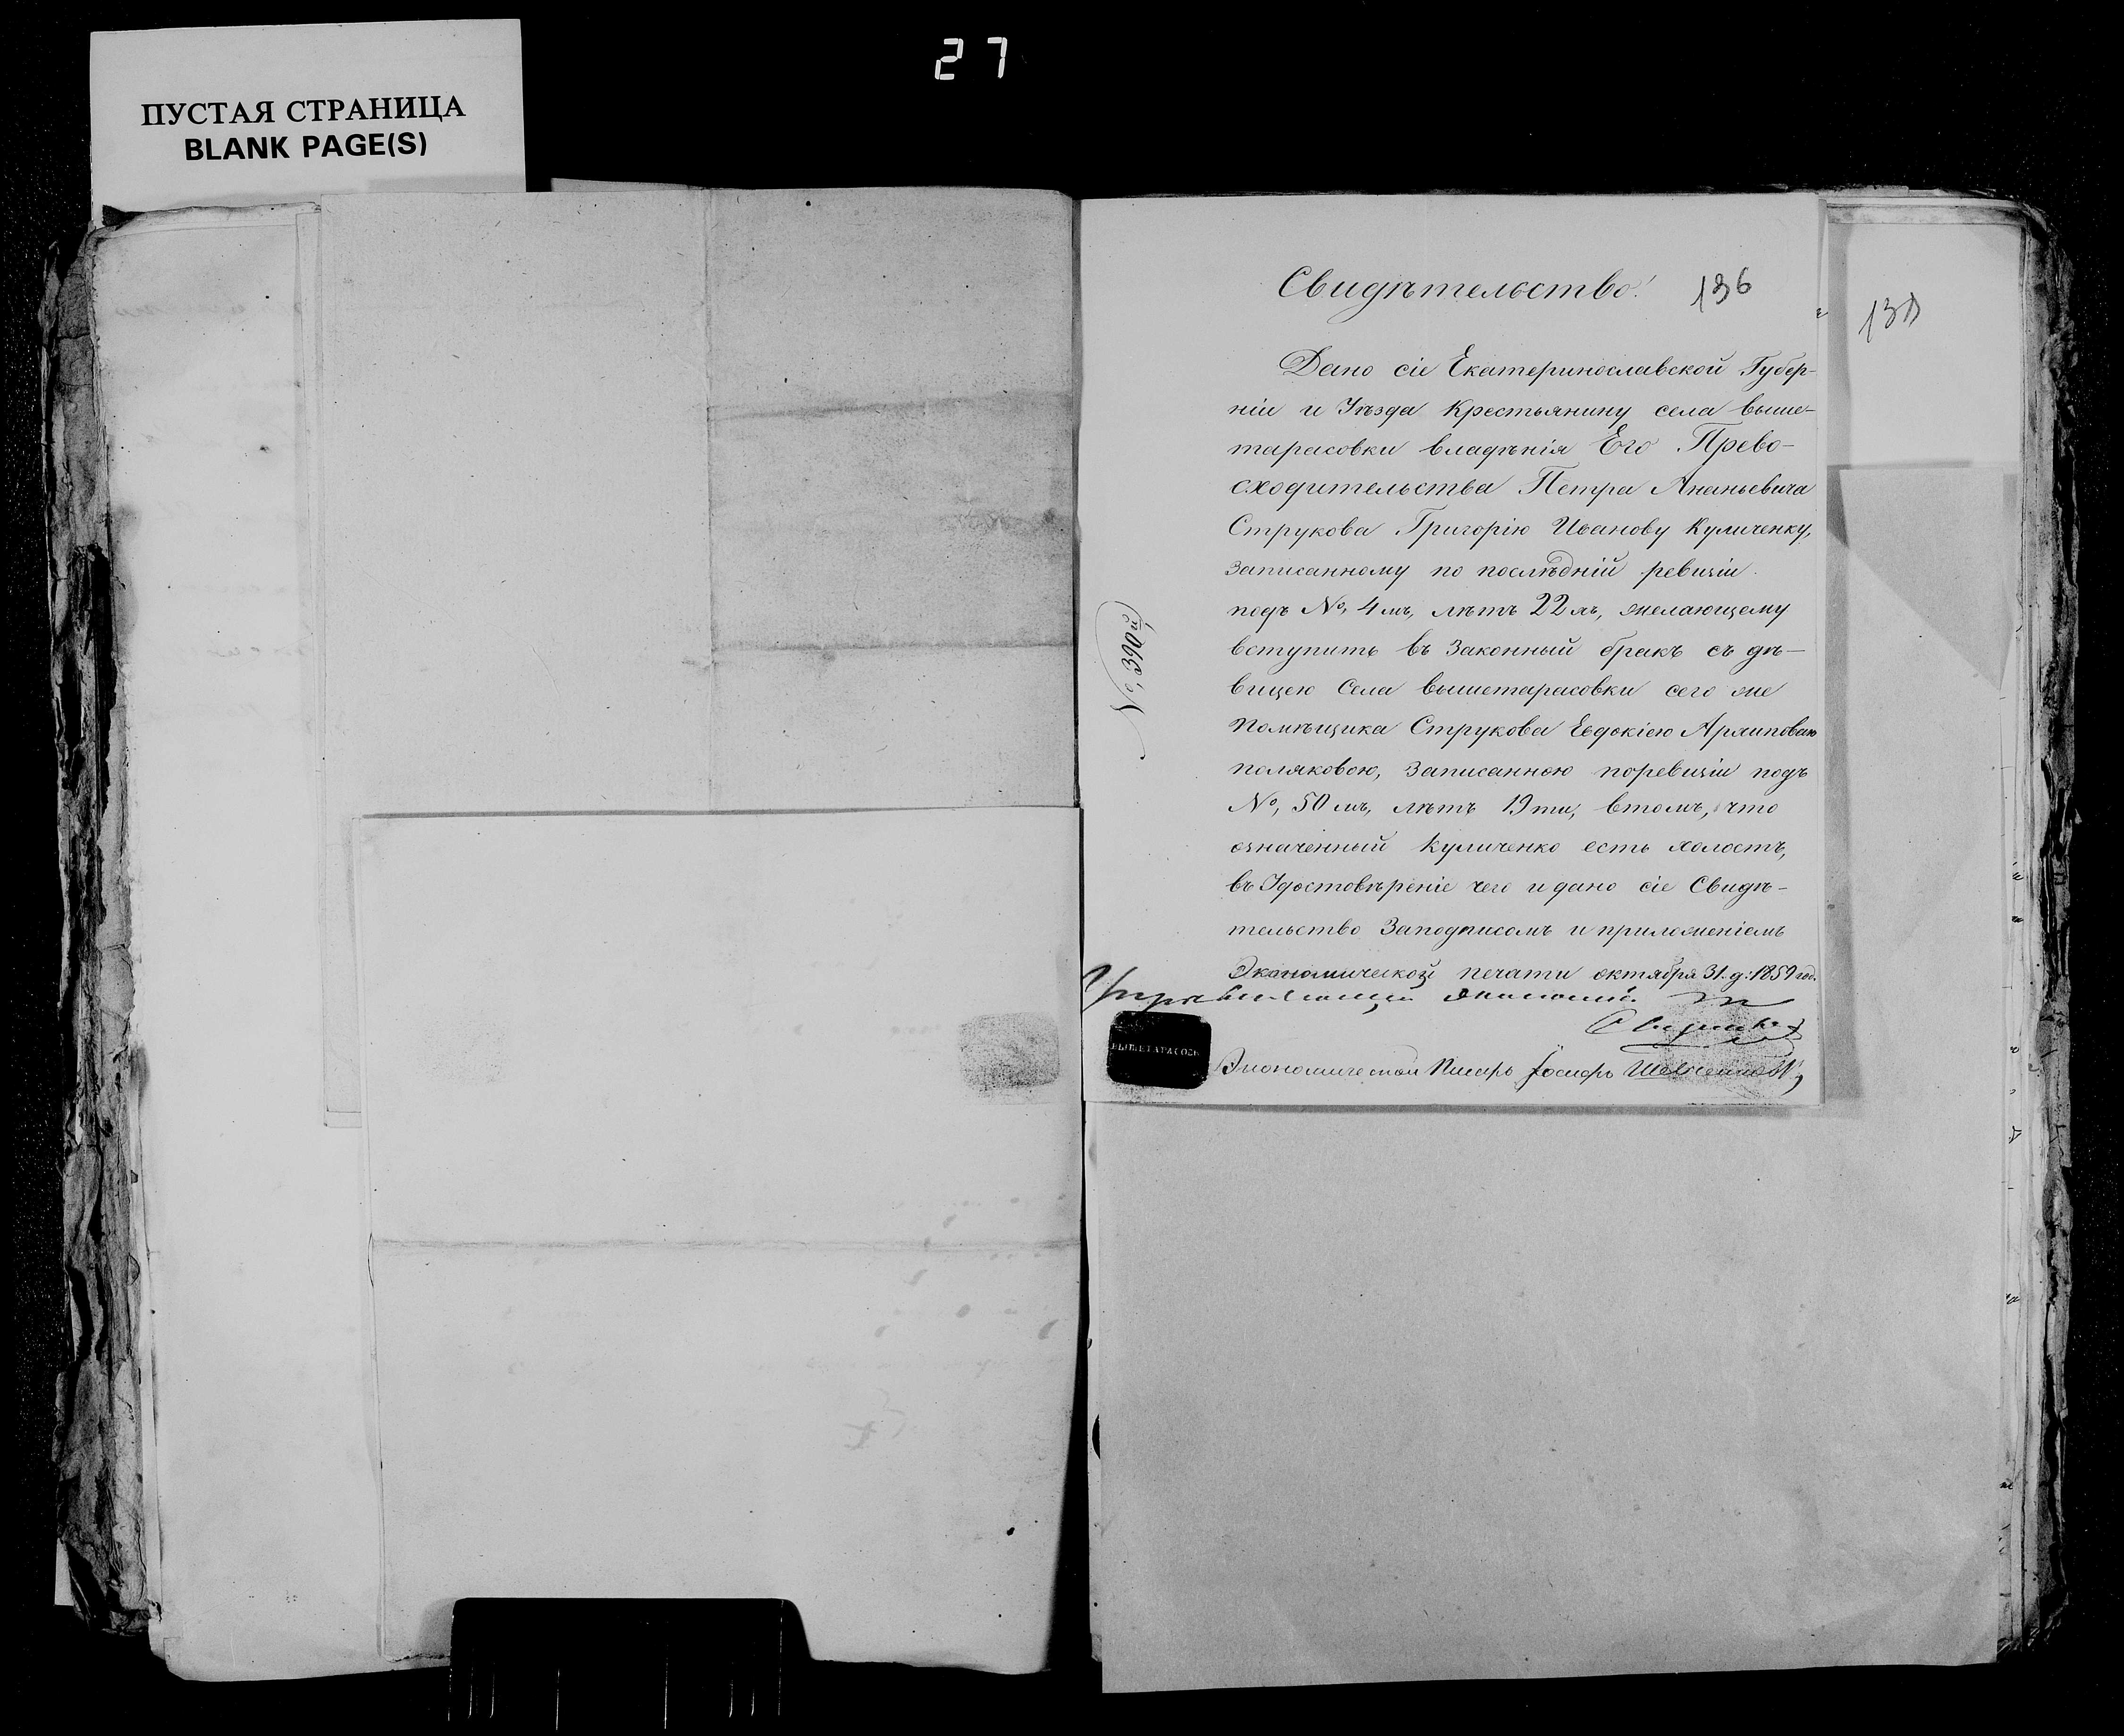 27
ПУСТАЯ СТРАНИЦА
BLANK PAGE(S)
Свидѣтельство!
136
Дано сіе Екатеринославской Губер-
ніи и Уѣзда Крестьянину села выше-
тарасовки владѣнія Его Прево-
сходительства Петра Ананьевича
Струкова Григорію Иванову Куличенку,
Записанному по послѣдній ревизіи
подъ №, 4 мъ, лѣтъ 22 хъ, желающему
вступить въ Законный бракъ съ дѣ-
вицею Села вышетарасовки сего же
Помѣщика Струкова Евдокіею Архиповою
поляковою, Записанною поревизіи подъ
№, 50 мъ, лѣтъ 19 ти, втомъ, что
означенный Куличенко есть холостъ,
въ Удостовѣреніе чего и дано сіе Свидѣ-
тельство Заподписомъ и приложеніемъ
Экономической печати октября 31. д: 1859 год.
№, 390й
Управляющій
ВЫШЕТАРАСОВ
Экономической Писарь Іосифъ